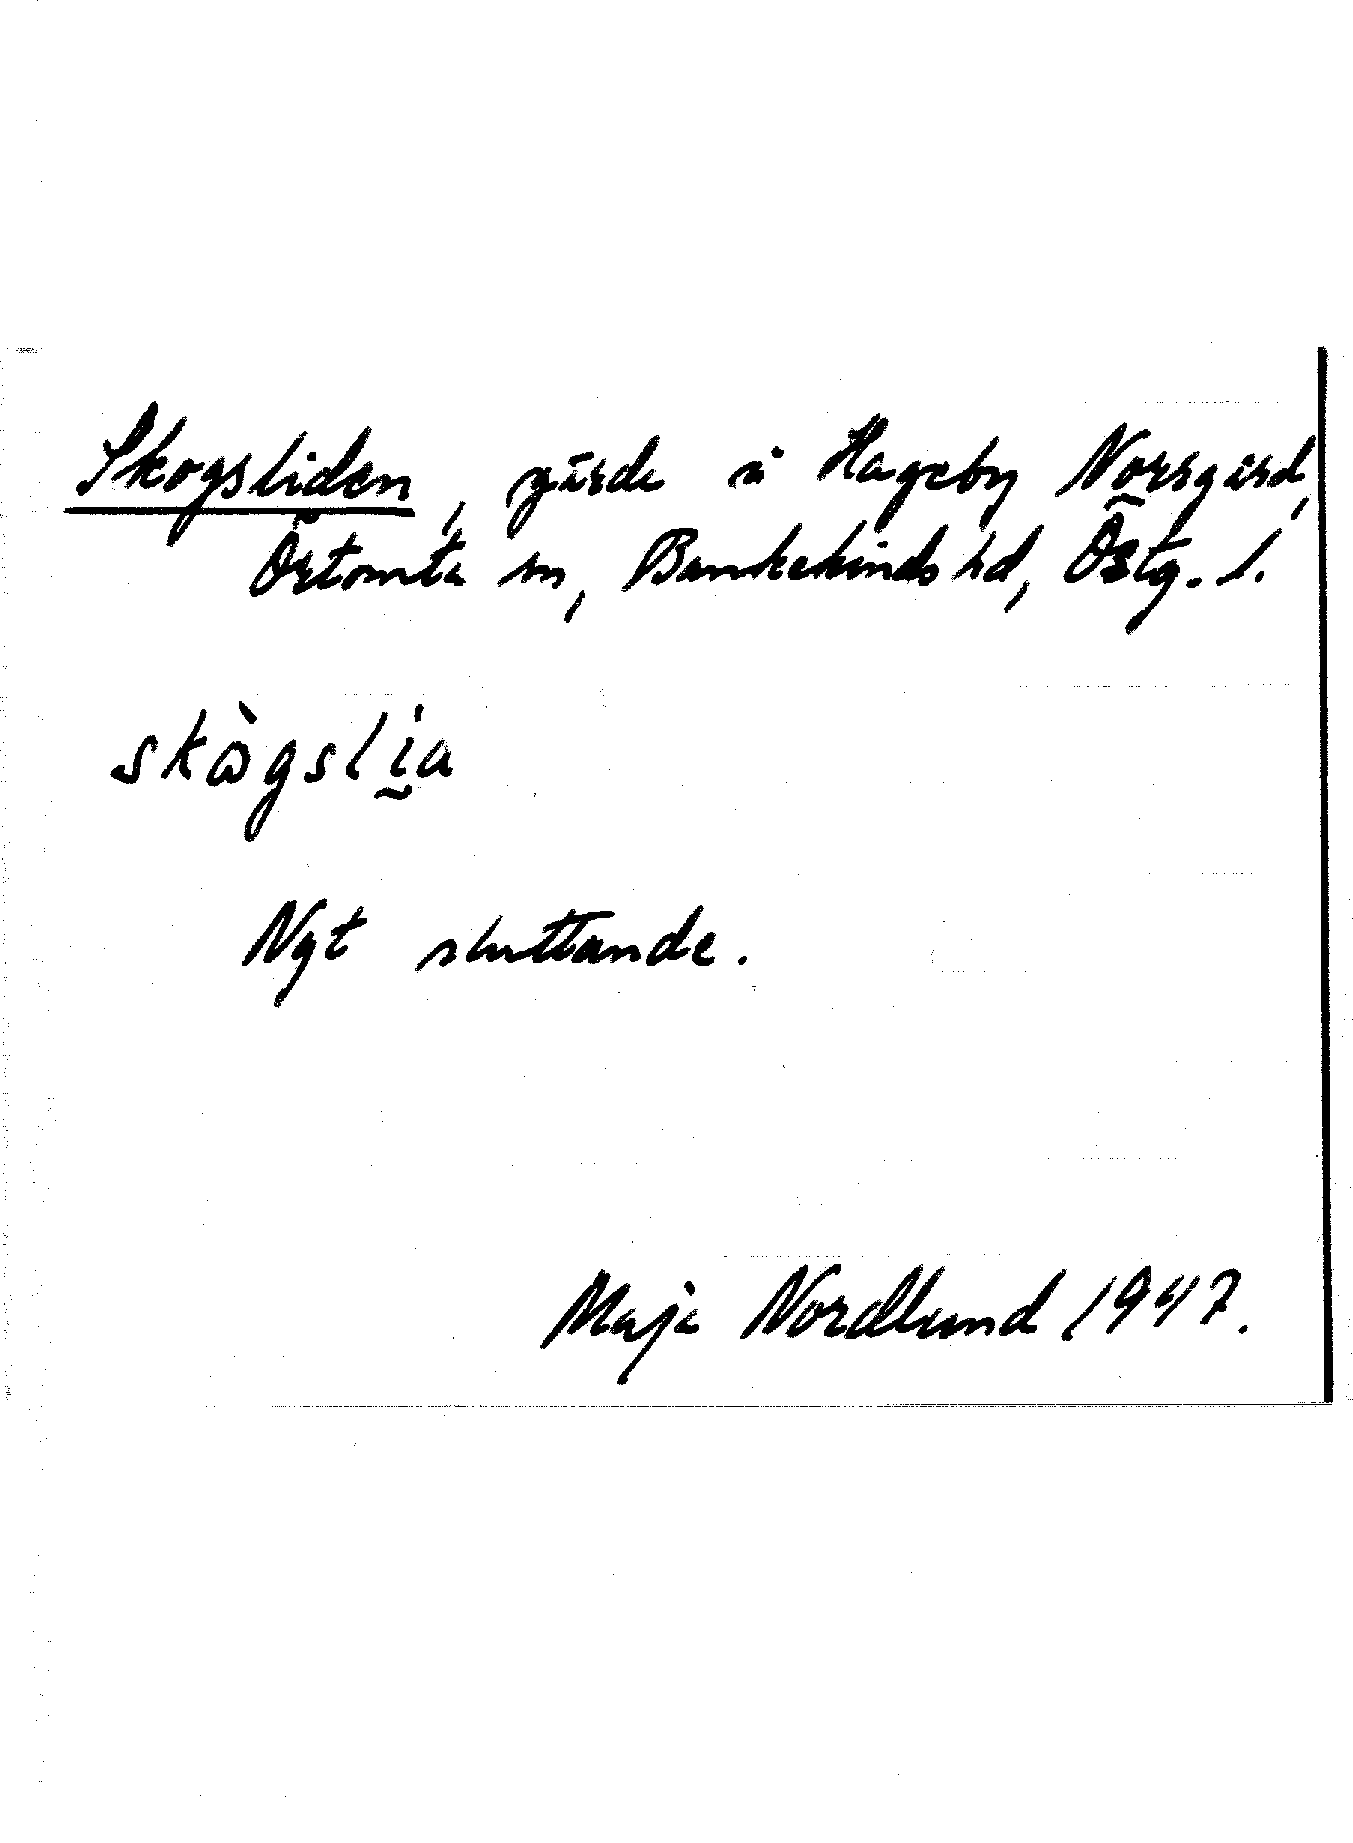 Skogsliden, gärde å Hageby Norrgård,
Örtomta sn, Bankekinds hd, Östg. l.
skògslia
Ngt sluttande.
Maja Nordlund 1947.